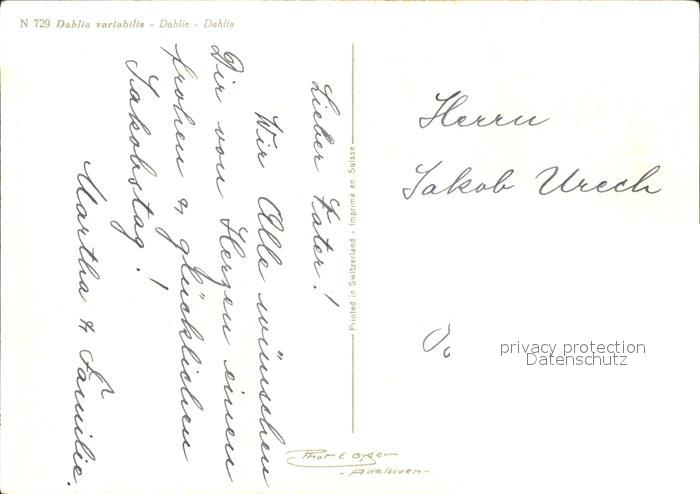 N 729 Dahlia variabilis - Dahlie - Dahlia
Lieber Vater!
Wir Alle wünschen
Dir von Herzen einen
frohen & glücklichen
Jakobstag!
Martha & Familie.
Printed in Switzerland - Imprimé en Suisse
Herrn
Jakob Urech
privacy protection
Datenschutz
- Adelboden -